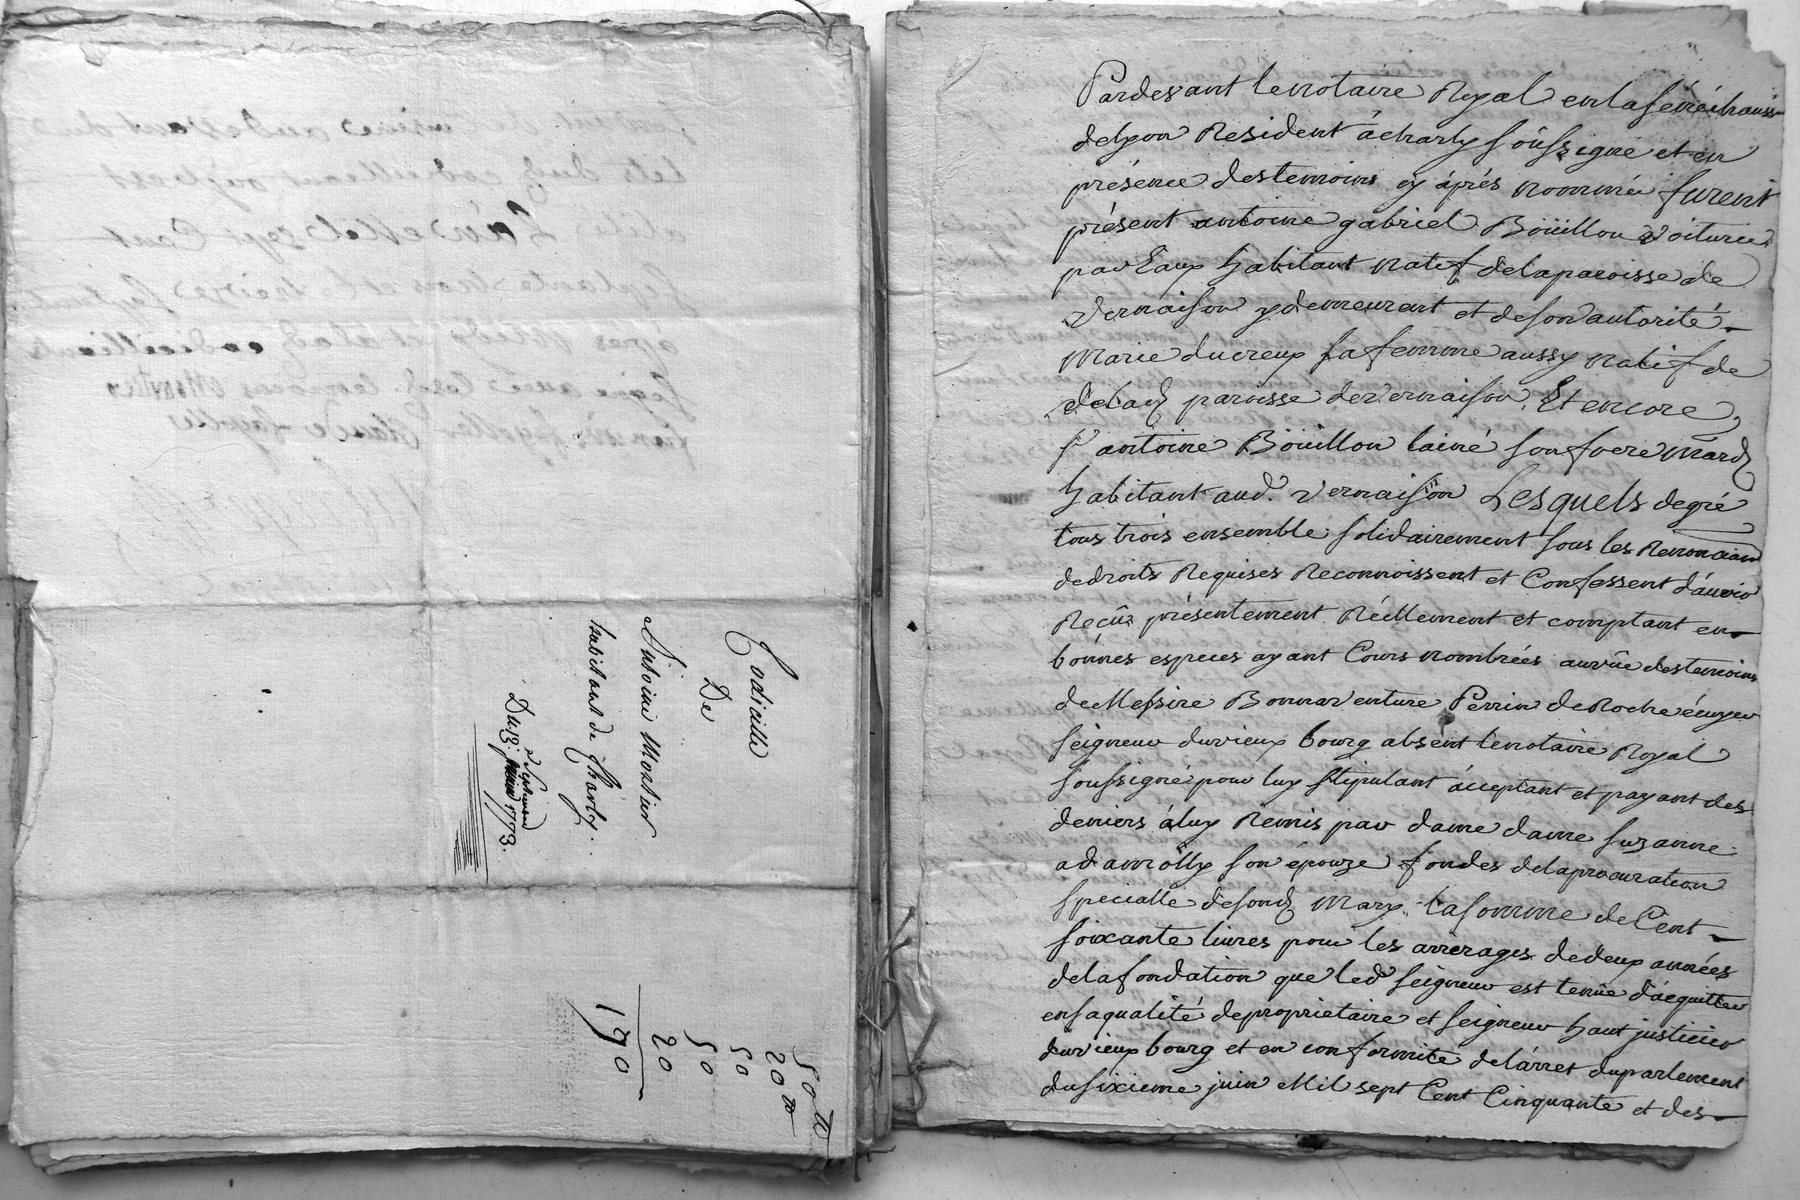 Codicille
De
Antoine Mortier
habitant de Charly.
Du 13e Septembre 1773.
50 lt
20
50
50
20
190
Pardevant le notaire Royal en la sénéchaussé
de Lyon Resident à charly soussigné et en
présence des temoins cy áprés nommés furent
présent antoine gabriel Boüillon voiturier
par Eaux habitant natif de la paroisse de
vernaison y demeurant et de son autorité
Marie ducreux sa femme aussy natif de
de lad. paroisse de vernaison, Et encore
sr antoine Boüillon lainé son frere mard
habitant aud. vernaison Lesquels de gré
tous trois ensemble solidairement sous les Renonciaon
de droits Requises Reconnoissent et Confessent d'avoir
Reçûs présentement Réellement et comptant en
bonnes especes ayant Cours nombrées au vûe des temoins
de Messire Bonnaventure Perrin de Roche écuyer
seigneur du vieux bourg absent le notaire Royal
soussigné pour luy stipulant ácceptant et payant des
deniers á luy Remis par dame dame suzanne
adamolly son épouze fondés de la procuration
specialle de sond. Mary la somme de Cent
soixante livres pour les arrérages de deux années
de la fondation que led. seigneur est tenüe d'ácquitter
en sa qualité de proprietaire et seigneur haut justicier
du vieux bourg et en conformité de l'árret du parlement
du sixieme juin Mil sept Cent Cinquante et des